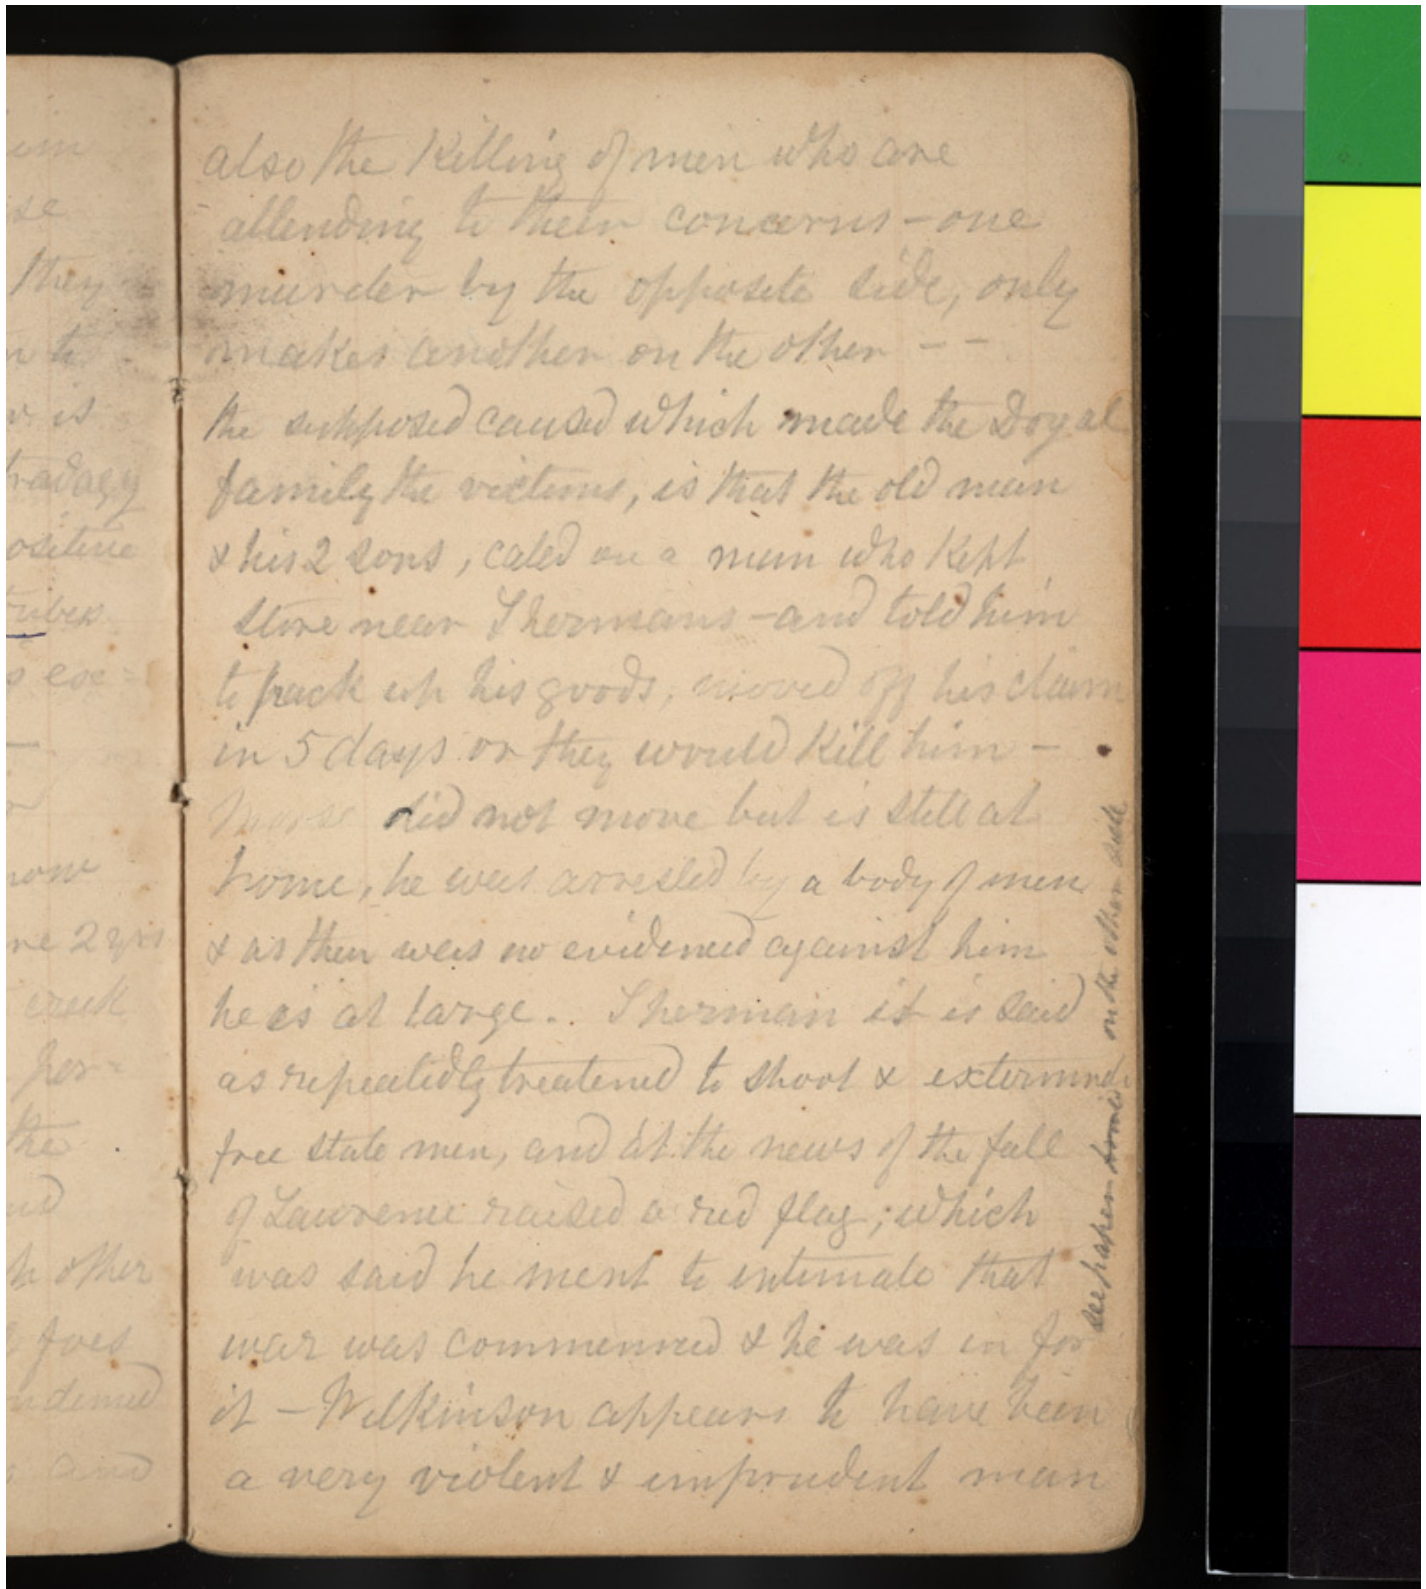 im
se
they
n to
w is
tradagy
ositive
tribes
s exe=
—
now
re 2 yrs
creek
per=
the
nd
h other
foes
ndemed
and
also the Killing of men who are
attending to their concerns – one
murder by the opposite side, only
makes another on the other – –
the supposed caused which made the Doyal
family the victims, is that the old man
& his 2 sons, caled on a man who Kept
store near Shermans – and told him
to pack up his goods, moved off his claim
in 5 days or they would Kill him –
Morse did not move but is still at
home, he was arrested by a body of men
& as then was no evidenced against him
he is at large.. Sherman it is said
as repeatedly treatened to shoot & exterminate
free state men, and at the news of the fall
of Lawrence raised a red flag; which
was said he ment to intimate that
war was commenced & he was in for
it – Wilkinson appears to have been
a very violent & imprudent man
see paper on the other side